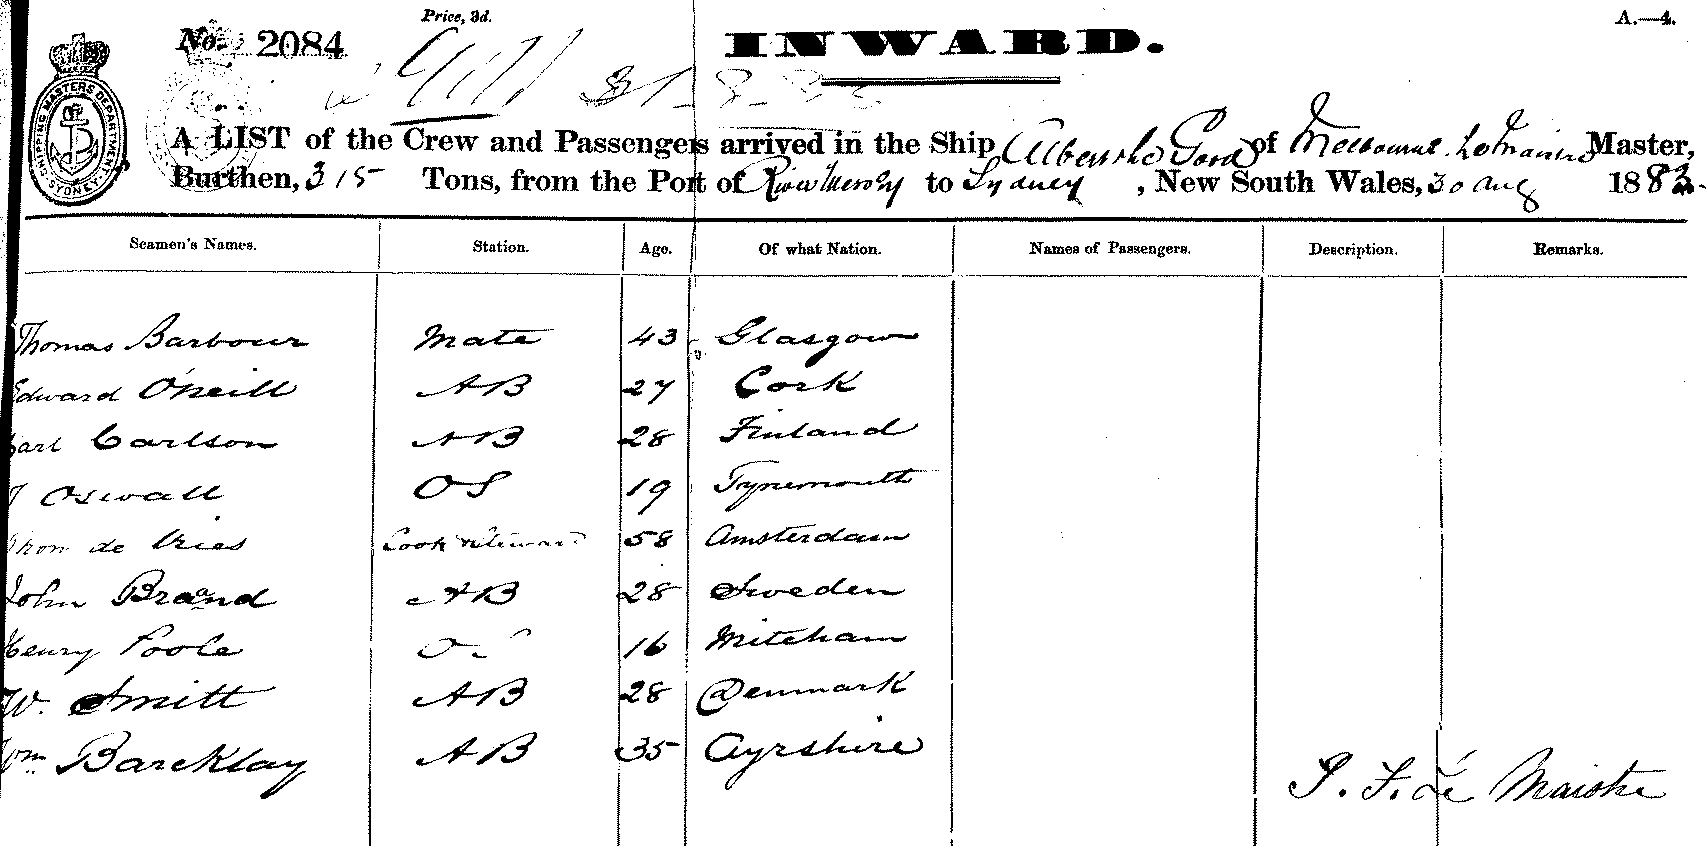 Price, 3d.
A.—4.
No. 2084
INWARD.
SHIPPING MASTERS DEPARTMENT. SYDNEY
A LIST of the Crew and Passengers arrived in the Ship of Melbourne Master,
Burthen, 315 Tons, from the Port of River Mersey to Sydney, New South Wales, 30 Aug 1883.
Seamen's Names. Station. Age. Of what Nation. Names of Passengers. Description. Remarks.
Thomas Barbour Mate 43 Glasgow
Edward O'Neill AB 27 Cork
Carl Carlson AB 28 Finland
J Oswall OS 19 Tynemouth
de Vries Cook & Steward 58 Amsterdam
John Brand AB 28 Sweden
Henry Poole 16 Mitcham
W. Smitt AB 28 Denmark
Wm Barcklay AB 35 Ayrshire